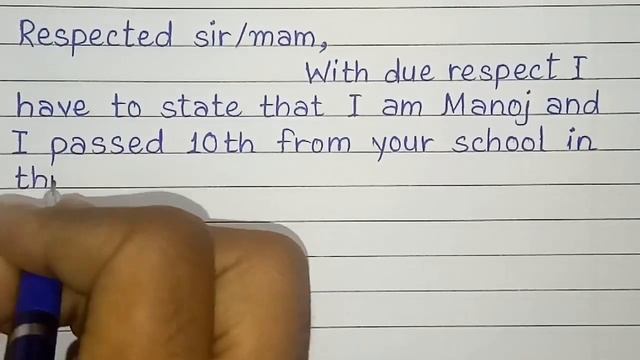 Respected sir/mam,
With due respect I
have to state that I am Manoj and
I passed 10th from your school in
th